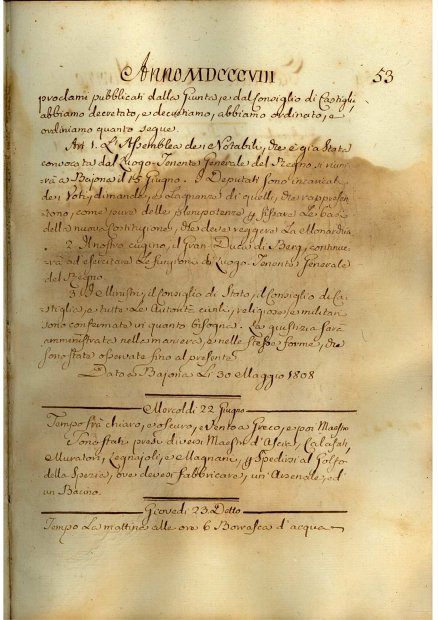 Anno MDCCCVIII 53
proclami pubblicati dalla Giunta, e dal Consiglio di Castiglia,
abbiamo decretato, e decretiamo, abbiamo ordinato, e
ordiniamo quanto segue.
Art. 1. L'Assemblea dei Notabili, che è già stata
convocata dal Luogo-Tenente Generale del Regno si riuni-
rà a Bajona il 15 Giugno. I Deputati sono incaricati
dei Voti, dimande, e Lagnanze di quelli, che rappresen-
tano, come pure delle plenipotenze per fissare Le basi
della nuova Costituzione, che deve reggere La Monarchia.
2. Il nostro cugino, il Gran Duca di Berg, continue-
rà ad esercitare Le funzioni di Luogo-Tenente Generale
del Regno.
3. I Ministri, il Consiglio di Stato, il Consiglio di Ca-
stiglia, e tutte Le Autorità civili, religiose, e militari
sono confermate in quanto bisogna. La giustizia sarà
amministrata nella maniera, e nelle stesse forme, che
sono state osservate fino al presente.
Dato a Bajona Li 30 Maggio 1808
Mercoldi 22 Giugno
Tempo frà chiaro, e oscuro, e Vento a Greco, e poi Maestro
Sono stati presi diversi Maestri d'Ascia, Calafati,
Muratori, Legnajoli, e Magnani, per Spedirsi al Golfo
della Spezia, ove devesi fabbricare, un'Arsenale, ed
un Bacino.
Giovedi 23 Detto
Tempo La mattina alle ore 6 Borrasca d'acqua